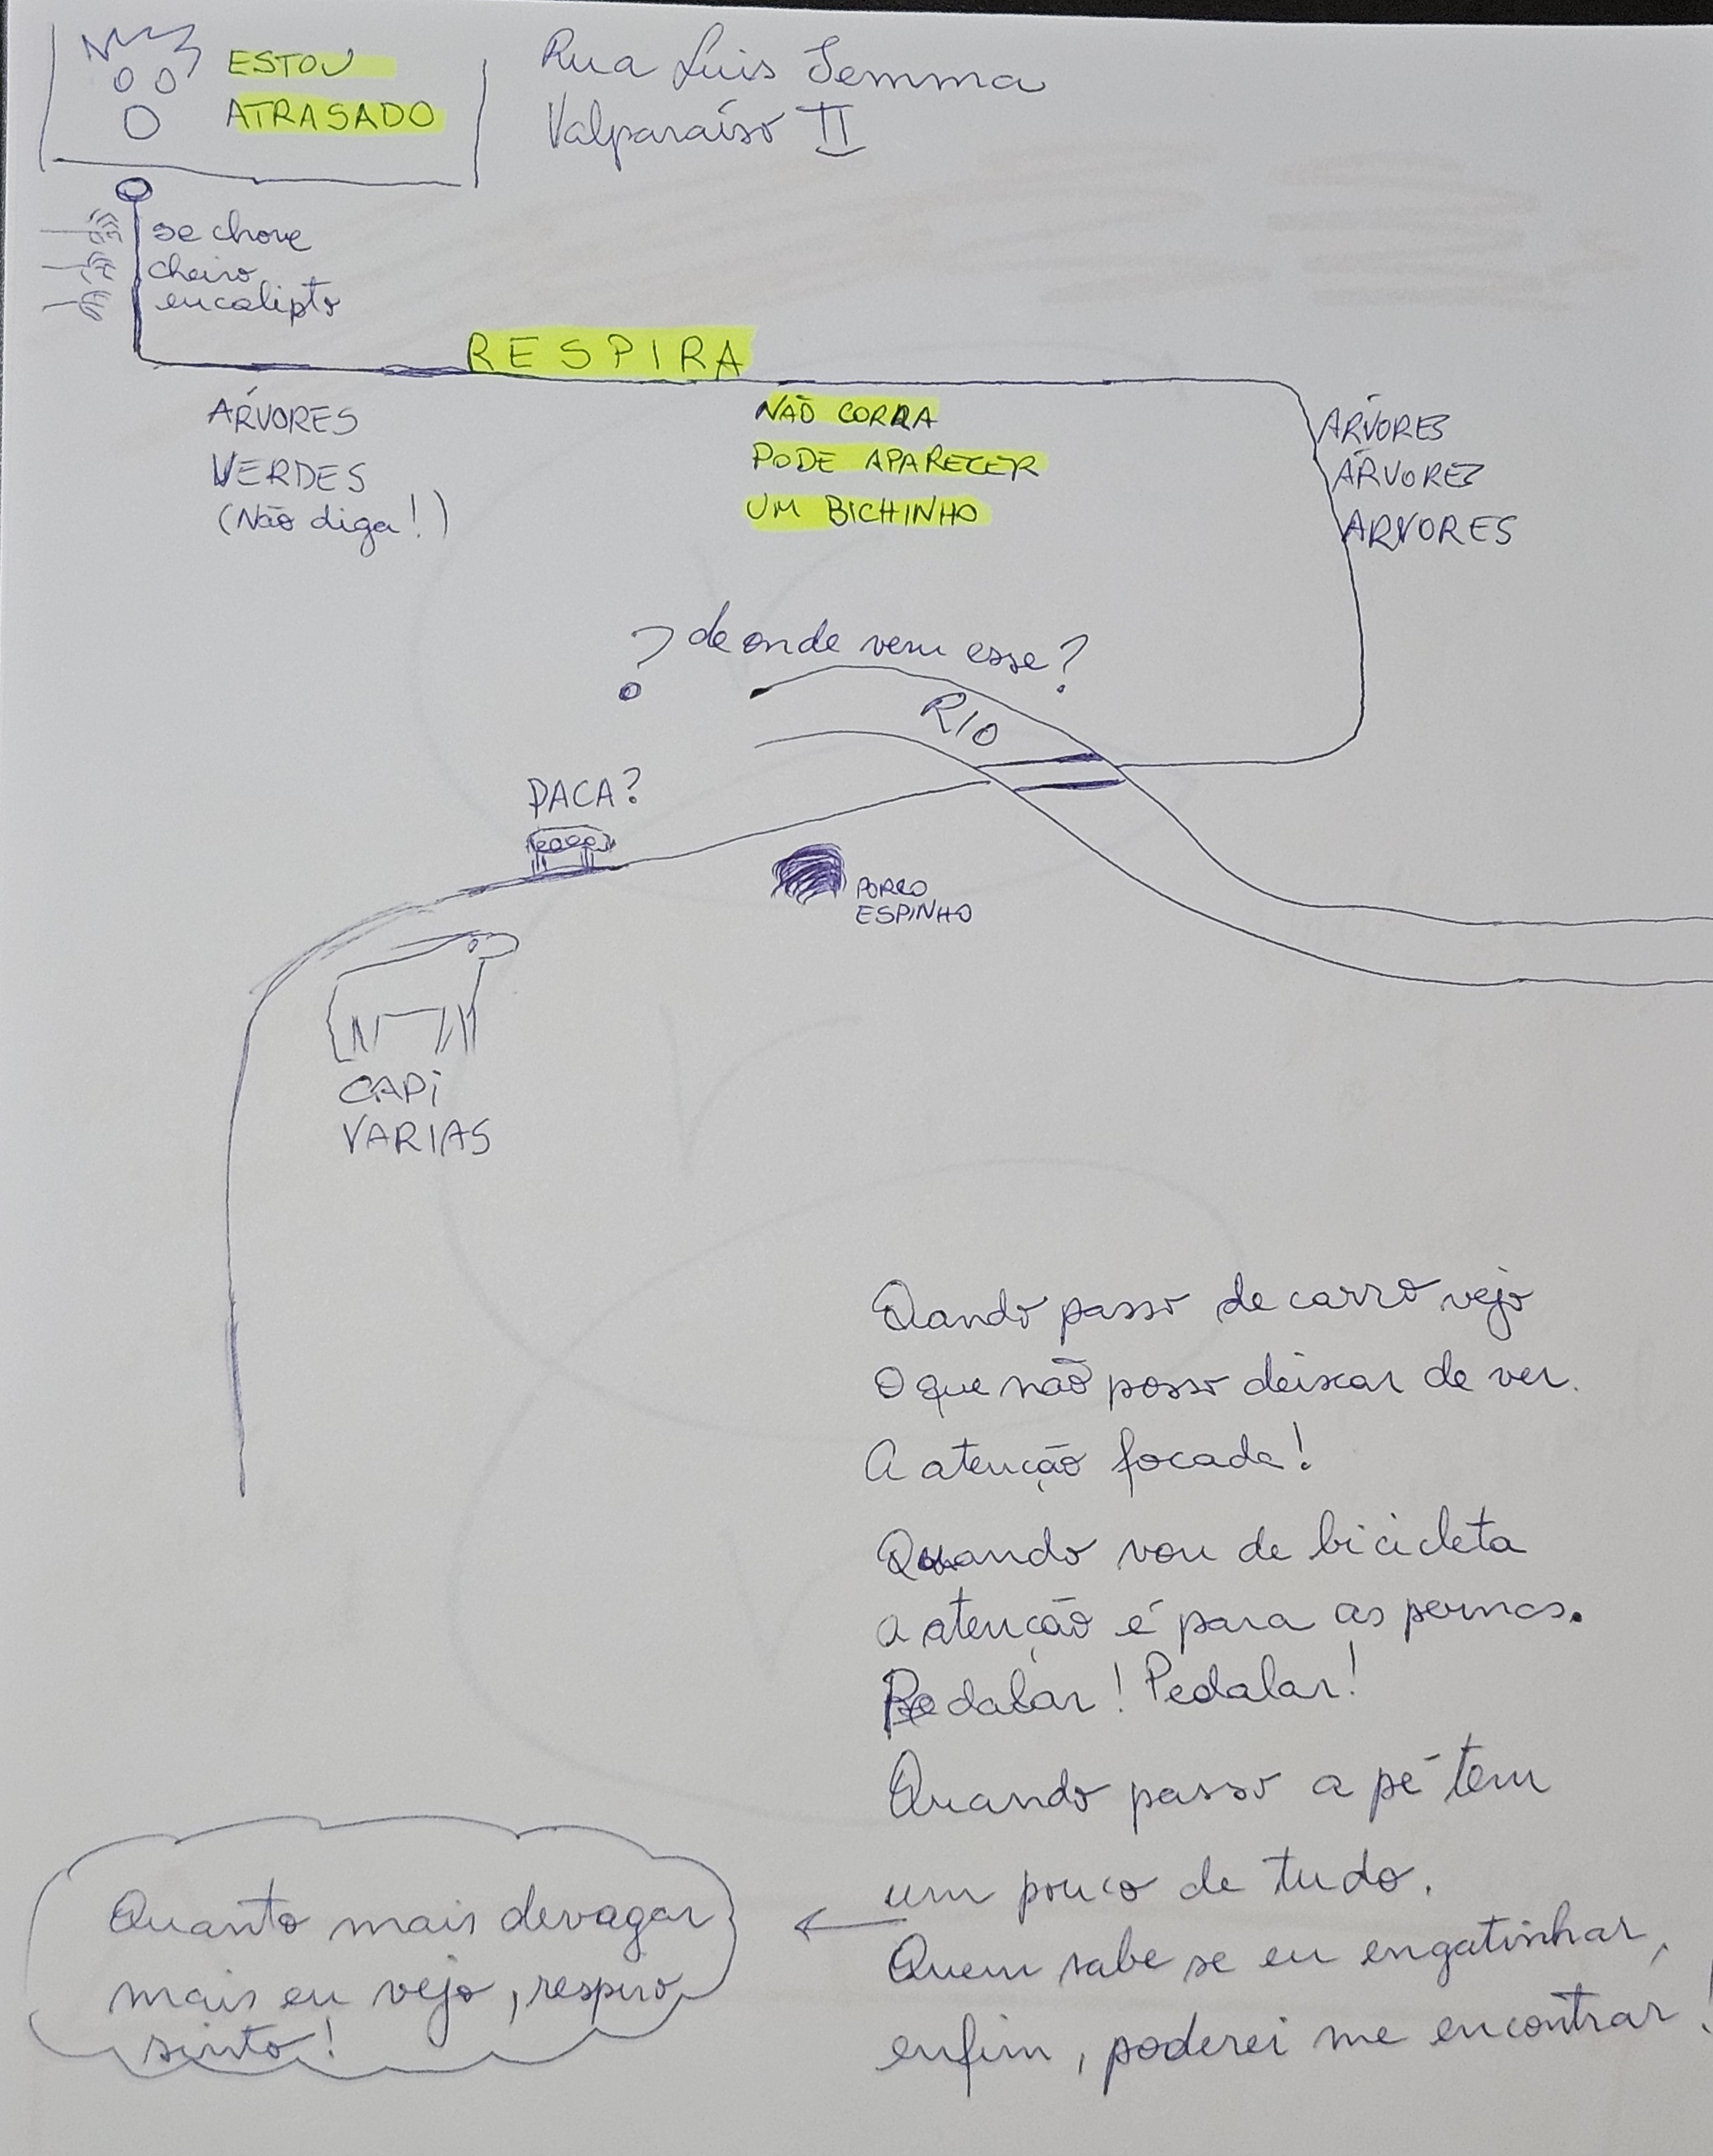 ESTOU
ATRASADO
Rua Luis Semma
Valparaíso II
se chove
cheiro
eucalipto
RESPIRA
ÁRVORES
VERDES
(Não diga!)
NÃO CORRA
PODE APARECER
UM BICHINHO
ÁRVORES
ÁRVORES
ARVORES
? de onde vem esse?
RIO
PACA?
PORCO
ESPINHO
CAPI
VARIAS
Quando passo de carro vejo
O que não posso deixar de ver.
A atenção focada!
Quando vou de bicicleta
a atenção é para as pernas.
Pedalar! Pedalar!
Quando passo a pé tem
um pouco de tudo.
Quem sabe se eu engatinhar,
enfim, poderei me encontrar!
Quanto mais devagar
mais eu vejo, respiro,
sinto!